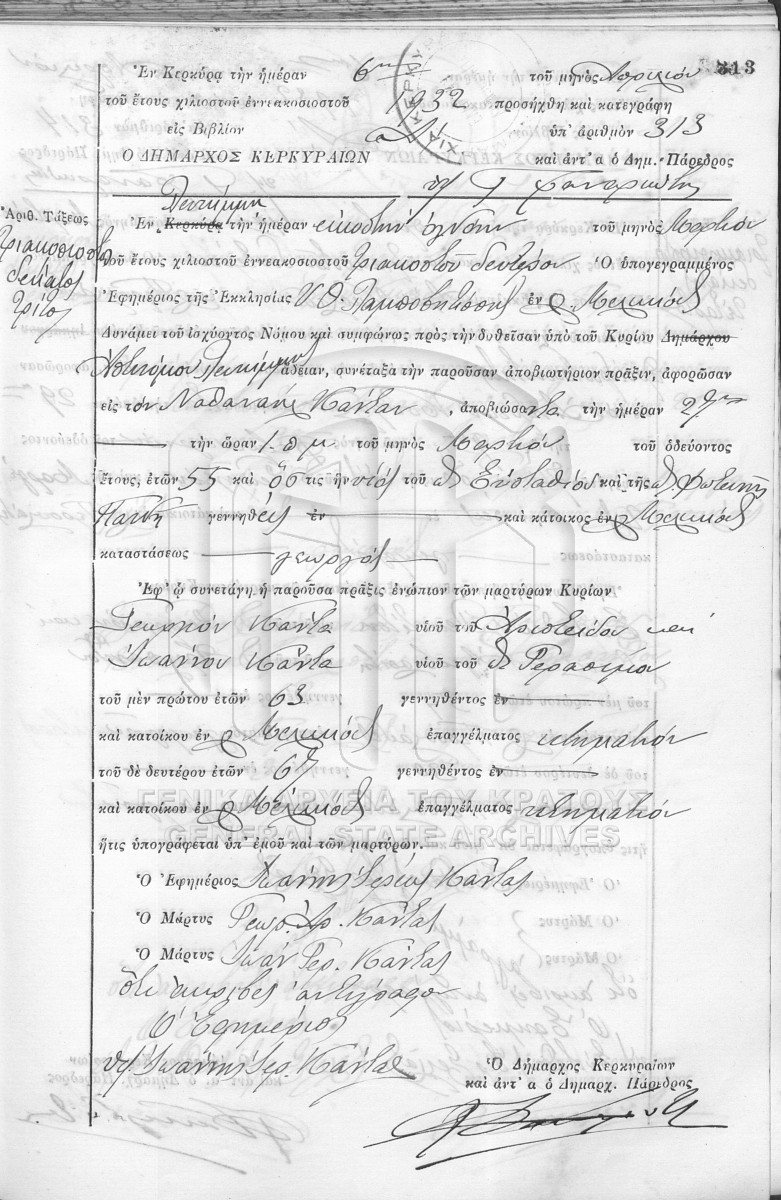 313
Ἐν Κερκύρᾳ τὴν ἡμέραν 6ην τοῦ μηνὸς Ἀπριλίου
τοῦ ἔτους χιλιοστοῦ ἐννεακοσιοστοῦ 1932 προσήχθη καὶ κατεγράφη
εἰς Βιβλίον ὑπ' ἀριθμὸν 313
Ο ΔΗΜΑΡΧΟΣ ΚΕΡΚΥΡΑΙΩΝ καὶ ἀντ' α ὁ Δημ. Πάρεδρος
Λευκίμμη
Ἀριθ. Τάξεως
Τριακοσιοστὸς
δέκατος
τρίτος
Ἐν Κερκύρᾳ τὴν ἡμέραν εἰκοστὴν ὀγδόην τοῦ μηνὸς Μαρτίου
τοῦ ἔτους χιλιοστοῦ ἐννεακοσιοστοῦ τριακοστοῦ δευτέρου Ὁ ὑπογεγραμμένος
Ἐφημέριος τῆς Ἐκκλησίας Υ. Θ. ἐν Μελικίᾳ
Δυνάμει τοῦ ἰσχύοντος Νόμου καὶ συμφώνως πρὸς τὴν δοθεῖσαν ὑπὸ τοῦ Κυρίου Δημάρχου
Ἀστυνόμου Λευκίμμης ἄδειαν, συνέταξα τὴν παροῦσαν ἀποβιωτήριον πρᾶξιν, ἀφορῶσαν
εἰς τὸν Ναθαναὴλ Κάνταν, ἀποβιώσαντα τὴν ἡμέραν 27ην
τὴν ὥραν 1 π μ τοῦ μηνὸς Μαρτίου τοῦ ὁδεύοντος
ἔτους, ἐτῶν 55 καὶ ὅστις ἦν υἱὸς τοῦ Εὐσταθίου καὶ τῆς Φωτεινῆς
γεννηθεὶς ἐν καὶ κάτοικος ἐν Μελικίᾳ
καταστάσεως γεωργός
Ἐφ' ᾧ συνετάγη ἡ παροῦσα πρᾶξις ἐνώπιον τῶν μαρτύρων Κυρίων
Γεωργίου Κάντα υἱοῦ τοῦ Ἀριστείδου καὶ
Ἰωάννου Κάντα υἱοῦ τοῦ Γερασίμου
τοῦ μὲν πρώτου ἐτῶν 63 γεννηθέντος ἐν
καὶ κατοίκου ἐν Μελικίᾳ ἐπαγγέλματος κτηματίου
τοῦ δὲ δευτέρου ἐτῶν 67 γεννηθέντος ἐν
ΓΕΝΙΚΑ ΑΡΧΕΙΑ ΤΟΥ ΚΡΑΤΟΥΣ
καὶ κατοίκου ἐν Μελικίᾳ ἐπαγγέλματος κτηματίου
GENERAL STATE ARCHIVES
ἥτις ὑπογράφεται ὑπ' ἐμοῦ καὶ τῶν μαρτύρων.
Ὁ Ἐφημέριος Ἰωάννης Ἱερεὺς Κάντας
Ὁ Μάρτυς Γεωρ. Αρ. Κάντας
Ὁ Μάρτυς Ἰωάν Γερ. Κάντας
Ὅτι ἀκριβὲς ἀντίγραφον
Ὁ Ἐφημέριος
Ἰωάννης Ιερ. Κάντας
Ὁ Δήμαρχος Κερκυραίων
καὶ ἀντ' α ὁ Δημαρχ. Πάρεδρος